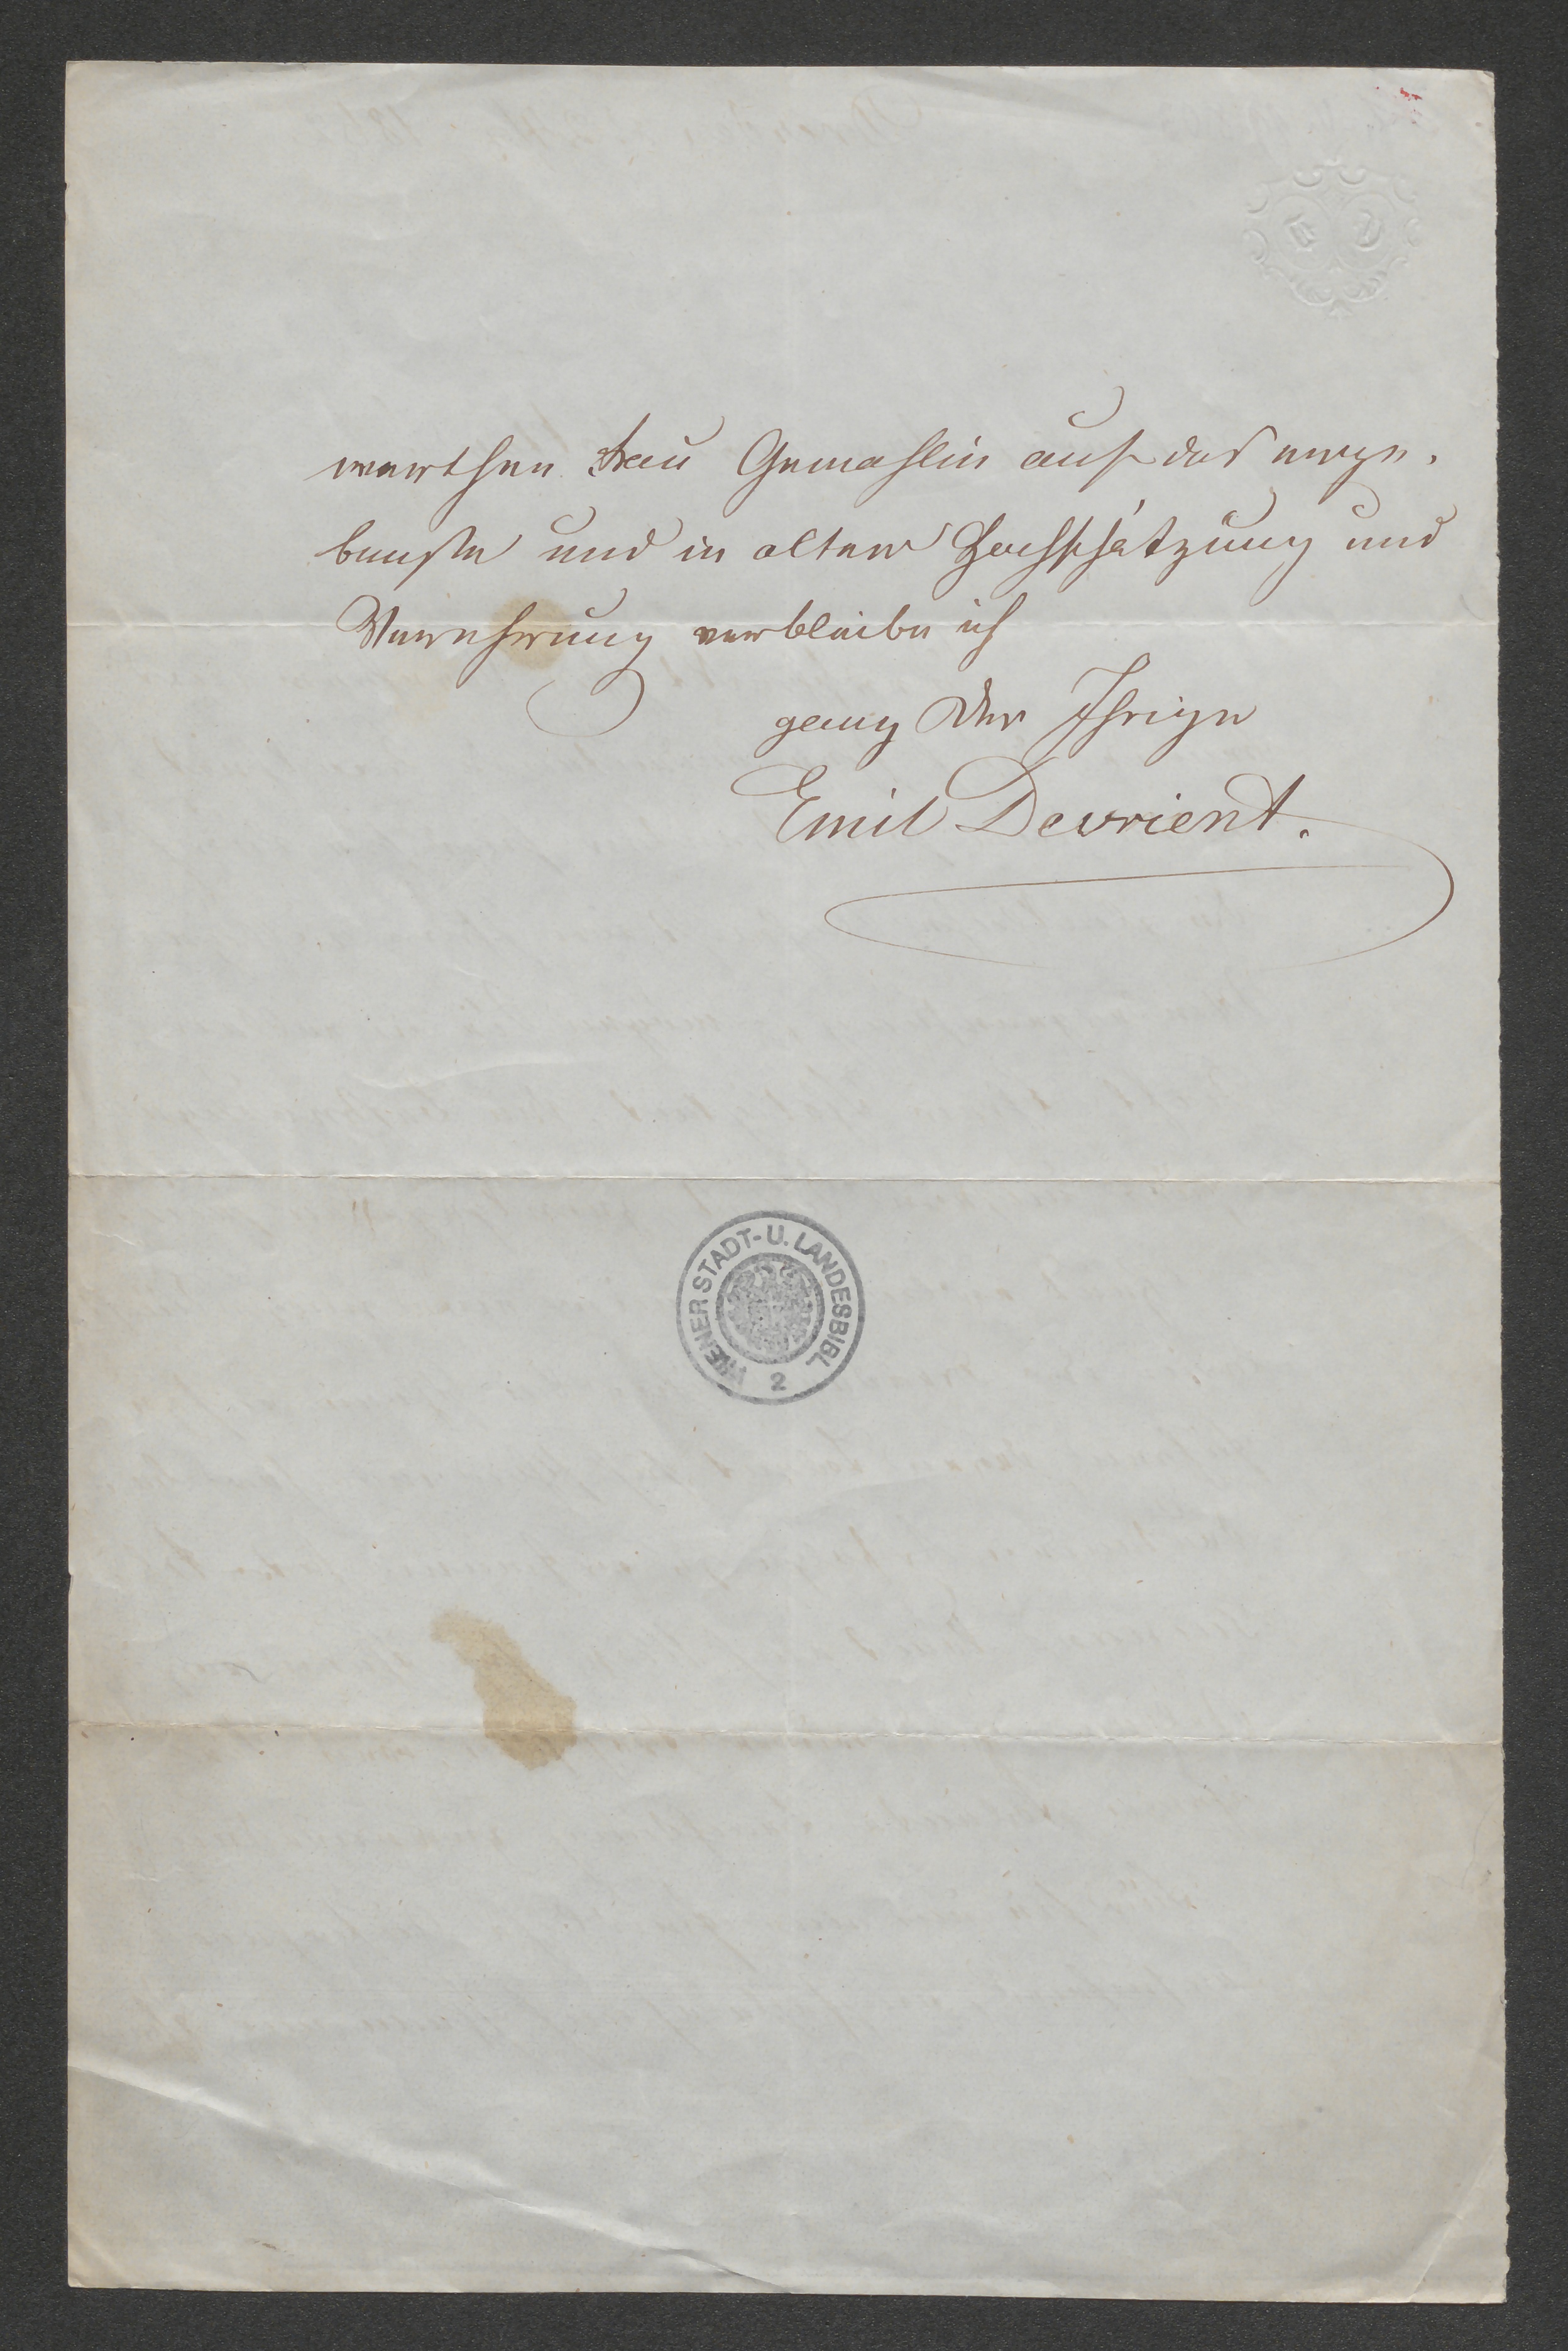 werthen Frau Gemahlin auf das erge-
benste und in alter Hochschätzung und
Verehrung verbleibe ich
ganz der Ihrige
Emil Devrient.
WIENER STADT- U. LANDESBIBL.
2